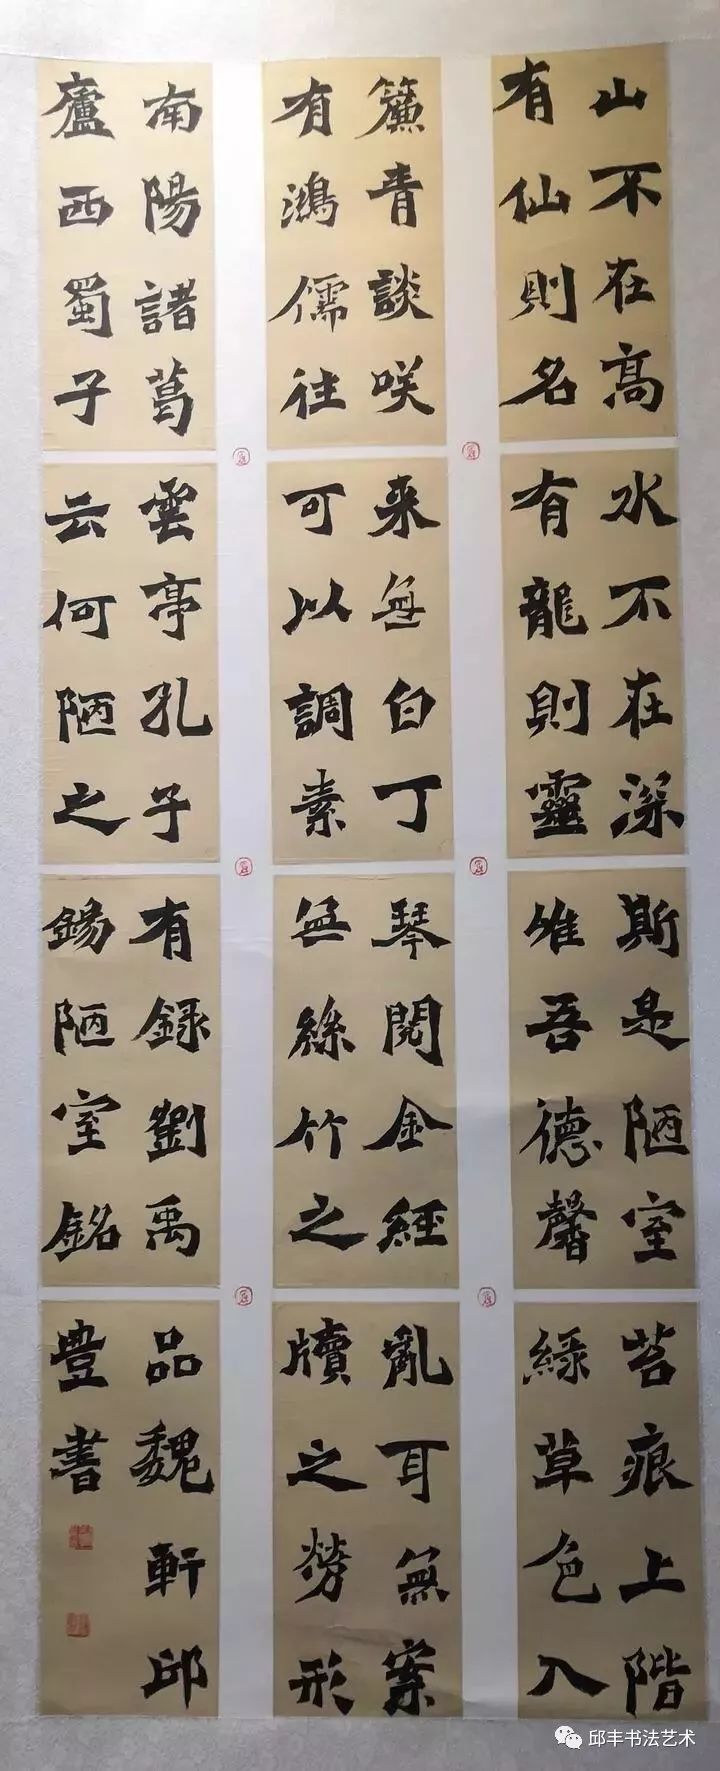 山不在高
有仙則名
水不在深
有龍則靈
斯是陋室
惟吾德馨
苔痕上階
緑草色入
簾青談咲
有鴻儒往
来無白丁
可以調素
琴閱金經
無絲竹之
亂耳無案
牘之勞形
南陽諸葛
廬西蜀子
雲亭孔子
云何陋之
有録劉禹
錫陋室銘
品魏軒邱
豊書
邱丰书法艺术